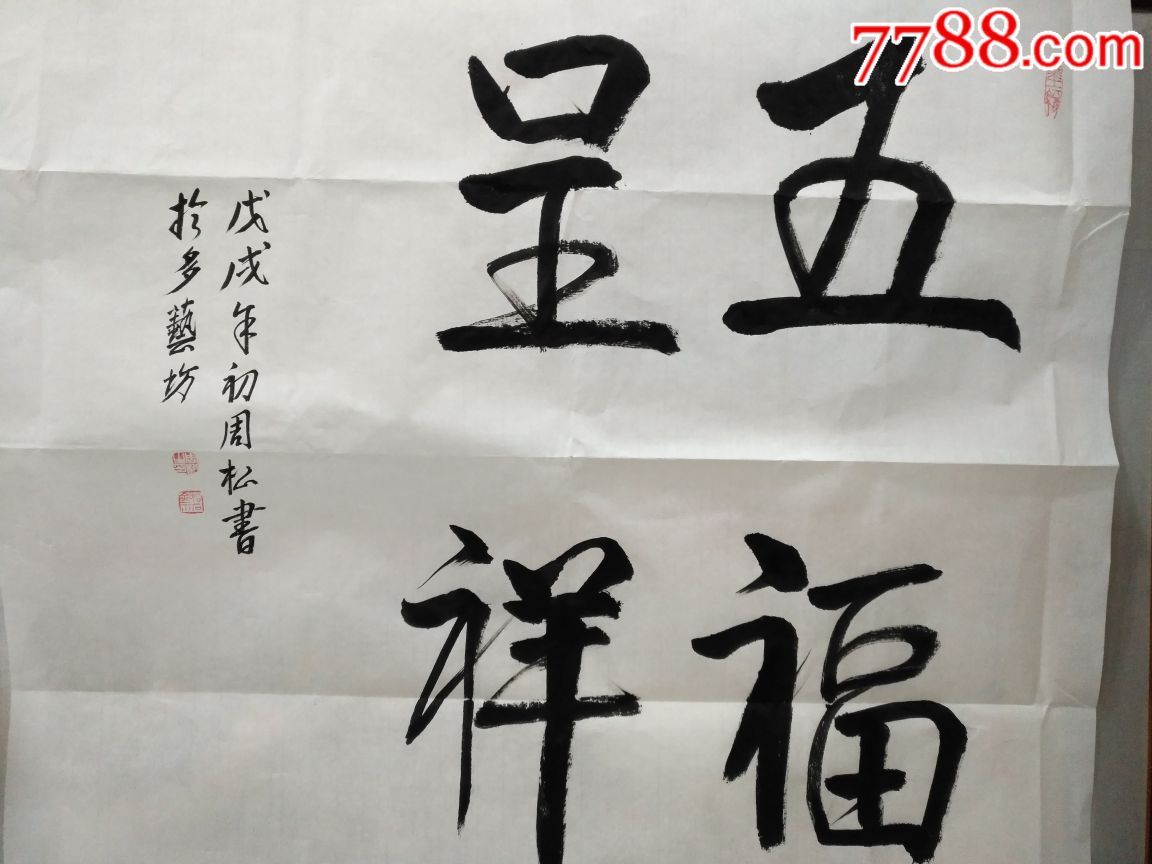 7788.com
五福
呈祥
戊戌年初周松書
於多藝坊